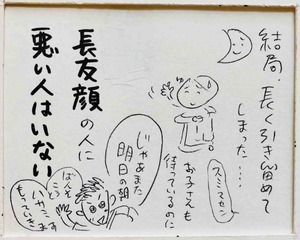 結局、長く引き留めて
しまった‥‥
スミマセン
お子さんも
待っているのに
長友顔の人に
悪い人はいない
じゃあまた
明日の朝